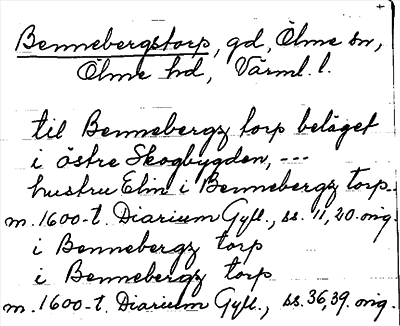 Bennebergstorp, gd, Ölme sn,
Ölme hd, Värml. l.
til Bennebergz torp beläget
i östre Skogbygden, ---
hustru Elin i Bennebergz torp.
m. 1600-t. Diarium Gyll., ss. 11, 20. orig.
i Bennebergz torp
i Bennebergz torp
m. 1600-t. Diarium Gyll., ss. 36, 39. orig.